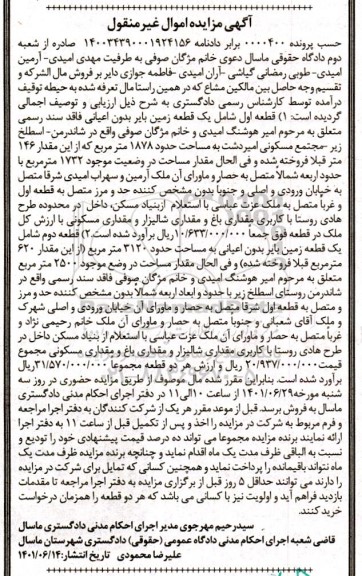 آگهی مزایده اموال غیر منقول
حسب پرونده ۰۰۰۰۴۰۰ برابر دادنامه ۱۴۰۰۳۴۳۹۰۰۰۱۹۲۴۱۵۶ صادره از شعبه
دوم دادگاه حقوقی ماسال دعوی خانم مژگان صوفی به طرفیت مهدی امیدی- آرمین
امیدی- طوبی رمضانی گیاشی -آران امیدی -فاطمه جوازی دایر بر فروش مال الشرکه و
تقسیم وجه حاصل بین مالکین مشاع که در همین راستا مال تعرفه شده به حیطه توقیف
درآمده توسط کارشناس رسمی دادگستری به شرح ذیل ارزیابی و توصیف اجمالی
گردیده است: ۱) قطعه اول شامل یک قطعه زمین بایر بدون اعیانی فاقد سند رسمی
متعلق به مرحوم امیر هوشنگ امیدی و خانم مژگان صوفی واقع در شاندرمن- اسطلخ
زیر -مجتمع مسکونی امیردشت به مساحت حدود ۱۸۷۸ متر مربع که از این مقدار ۱۴۶
متر قبلا فروخته شده و فی الحال مقدار مساحت در وضعیت موجود ۱۷۳۲ مترمربع با
حدود اربعه شمالا متصل به حصار و ماورای آن ملک آرمین و سهراب امیدی شرقا متصل
به خیابان ورودی و اصلی و جنوبا بدون مشخص کننده حد و مرز متصل به قطعه اول
و غربا متصل به ملک عزت عباسی با استعلام ازبنیاد مسکن، داخل در محدوده طرح
هادی روستا با کاربری مقداری باغ و مقداری شالیزار و مقداری مسکونی با ارزش کل
ملک در قطعه فوق جمعا ۱۰/۶۳۳/۰۰۰/۰۰۰ریال برآورد شده است.۲) قطعه دوم شامل
یک قطعه زمین بایر بدون اعیانی به مساحت حدود ۳۱۲۰ متر مربع (از این مقدار ۶۲۰
مترمربع قبلا فروخته شده) و فی الحال مقدار مساحت در وضع موجود ۲۵۰۰ متر مربع
متعلق به مرحوم امیر هوشنگ امیدی و خانم مژگان صوفی فاقد سند رسمی واقع در
شاندرمن روستای اسطلخ زیر با حدود و ابعاد اربعه شمالا بدون مشخص کننده حد و مرز
و متصل به قطعه اول شرقا متصل به حصار و ماورای آن خیابان ورودی و اصلی شهرک
و ملک آقای شعبانی و جنوبا متصل به حصار و ماورای آن ملک خانم رحیمی نژاد و
غربا متصل به حصار و ماورای آن ملک عزت عباسی با استعلام از بنیاد مسکن داخل در
طرح هادی روستا با کاربری مقداری شالیزار و مقداری باغ و مقداری مسکونی مجموع
قیمت۲۰/۹۳۷/۰۰۰/۰۰۰ ریال و ارزش هر دو قطعه مجموعا ۳۱/۵۷۰/۰۰۰/۰۰۰ریال
برآورد شده است. بنابراین مقرر شده مال موصوف از طریق مزایده حضوری در روز سه
شنبه مورخه۱۴۰۱/۰۶/۲۹ از ساعت ۱۰الی۱۱ در دفتر اجرای احکام مدنی دادگستری
ماسال به فروش برسد. قبل از موعد مقرر هر یک از شرکت کنندگان به دفتر اجرا مراجعه
و فرم مربوط به شرکت در مزایده را اخذ و پس از تکمیل قبل از ساعت ۱۱ به دفتر اجرا
ارائه نمایند برنده مزایده مجموعا می تواند ده درصد قیمت پیشنهادی خود را تودیع و
نسبت به الباقی ظرف مدت یک ماه اقدام نماید و چنانچه برنده مزایده ظرف مدت یک
ماه نتواند باقیمانده را پرداخت نماید و همچنین کسانی که تمایل برای شرکت در مزایده
را دارند می توانند حداقل ۵ روز قبل از برگزاری مزایده به دفتر اجرا مراجعه تا مقدمات
بازدید فراهم آید و اولویت نیز با کسانی می باشد که هر دو قطعه را همزمان درخواست
خرید کنند.
سیدرحیم مهرجوی مدیر اجرای احکام مدنی دادگستری ماسال
قاضی شعبه اجرای احکام مدنی دادگاه عمومی (حقوقی) دادگستری شهرستان ماسال
علیرضا محمودی   تاریخ انتشار:۱۴۰۱/۰۶/۱۴